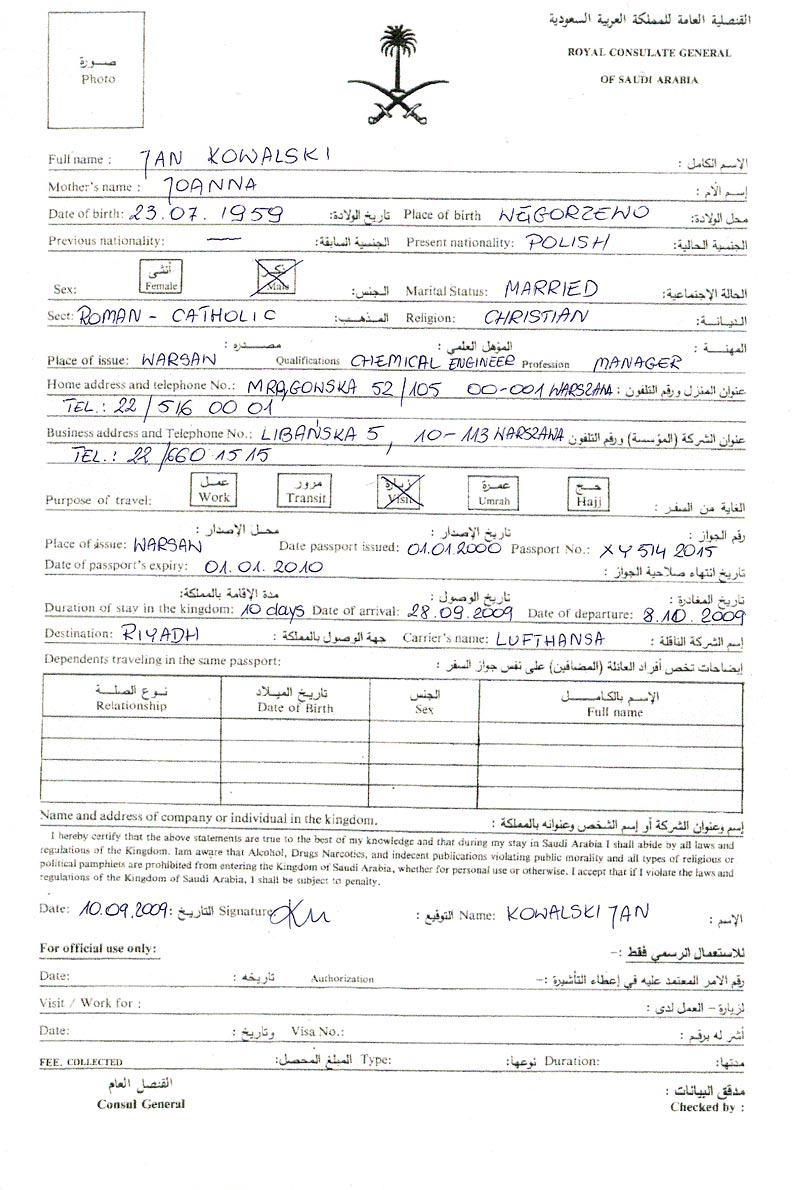 القنصلية العامة للمملكة العربية السعودية
صورة
Photo
ROYAL CONSULATE GENERAL
OF SAUDI ARABIA
Full name : JAN KOWALSKI الاسم الكامل :
Mother's name : JOANNA إسم الأم :
Date of birth: 23.07.1959 تاريخ الولادة: Place of birth WĘGORZEWO محل الولادة:
Previous nationality: — الجنسية السابقة: Present nationality: POLISH الجنسية الحالية:
أنثى ذكر
Sex: Female Male الجنس: Marital Status: MARRIED الحالة الإجتماعية:
Sect: ROMAN - CATHOLIC المذهب: Religion: CHRISTIAN الديانة:
مصدره : المؤهل العلمي : المهنة :
Place of issue: WARSAW Qualifications CHEMICAL ENGINEER Profession MANAGER
Home address and telephone No.: MRĄGOWSKA 52/105 00-001 WARSZAWA عنوان المنزل ورقم التلفون :
TEL.: 22/516 00 01
Business address and Telephone No.: LIBAŃSKA 5, 10-113 WARSZAWA عنوان الشركة (المؤسسة) ورقم التلفون
TEL.: 22/660 15 15
عمل مرور زيارة عمرة حج
Purpose of travel: Work Transit Visit Umrah Hajj الغاية من السفر :
محل الإصدار : تاريخ الإصدار : رقم الجواز :
Place of issue: WARSAW Date passport issued: 01.01.2000 Passport No.: XY 514 2015
Date of passport's expiry: 01.01.2010 تاريخ انتهاء صلاحية الجواز :
مدة الإقامة بالمملكة: تاريخ الوصول : تاريخ المغادرة :
Duration of stay in the kingdom: 10 days Date of arrival: 28.09.2009 Date of departure: 8.10.2009
Destination: RIYADH جهة الوصول بالمملكة : Carrier's name: LUFTHANSA إسم الشركة الناقلة :
Dependents traveling in the same passport: إيضاحات تخص أفراد العائلة (المضافين) على نفس جواز السفر :
نوع الصلة تاريخ الميلاد الجنس الإسم بالكامل
Relationship Date of Birth Sex Full name
Name and address of company or individual in the kingdom. إسم وعنوان الشركة أو إسم الشخص وعنوانه بالمملكة :
I hereby certify that the above statements are true to the best of my knowledge and that during my stay in Saudi Arabia I shall abide by all laws and
regulations of the Kingdom. Iam aware that Alcohol, Drugs Narcotics, and indecent publications violating public morality and all types of religious or
political pamphiets are prohibited from entering the Kingdom of Saudi Arabia, whether for personal use or otherwise. I accept that if I violate the laws and
regulations of the Kingdom of Saudi Arabia, I shall be subject to penalty.
Date: 10.09.2009 التاريخ: Signature التوقيع : Name: KOWALSKI JAN الإسم :
For official use only: للاستعمال الرسمي فقط :-
Date: تاريخه : Authorization رقم الامر المعتمد عليه في إعطاء التأشيرة :-
Visit / Work for : لزيارة - العمل لدى :
Date: وتاريخ : Visa No.: أشر له برقم :
FEE. COLLECTED المبلغ المحصل: Type: نوعها: Duration: مدتها:
القنصل العام مدقق البيانات :
Consul General Checked by :